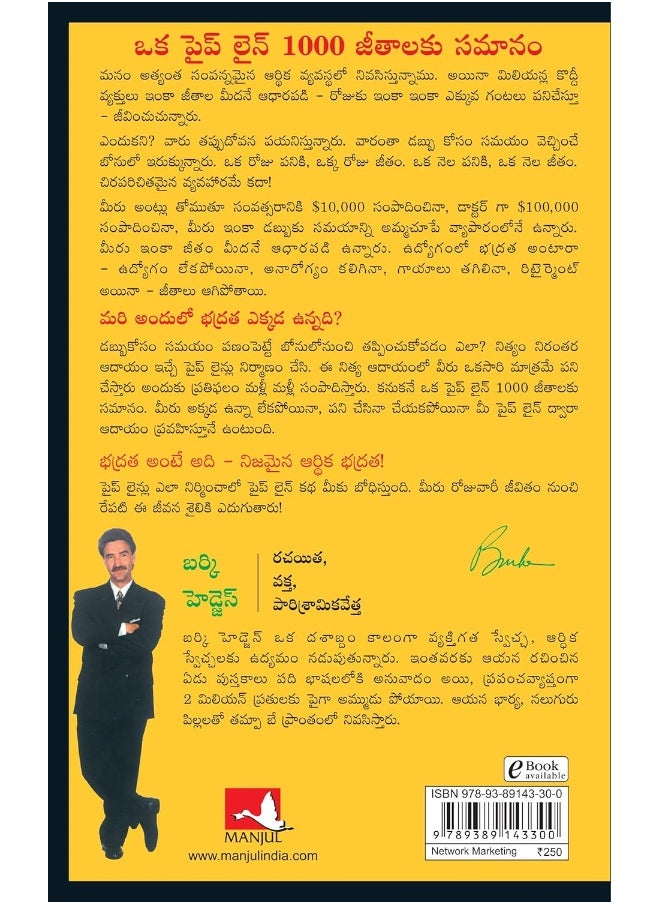 ఒక పైప్ లైన్ 1000 జీతాలకు సమానం
మనం అత్యంత సంపన్నమైన ఆర్థిక వ్యవస్థలో నివసిస్తున్నాము. అయినా మిలియన్ల కొద్దీ
వ్యక్తులు ఇంకా జీతాల మీదనే ఆధారపడి – రోజుకు ఇంకా ఇంకా ఎక్కువ గంటలు పనిచేస్తూ
– జీవించుచున్నారు.
ఎందుకని? వారు తప్పుదోవన పయనిస్తున్నారు. వారంతా డబ్బు కోసం సమయం వెచ్చించే
బోనులో ఇరుక్కున్నారు. ఒక రోజు పనికి, ఒక్క రోజు జీతం. ఒక నెల పనికి, ఒక నెల జీతం.
చిరపరిచితమైన వ్యవహారమే కదా!
మీరు అంట్లు తోముతూ సంవత్సరానికి $10,000 సంపాదించినా, డాక్టర్ గా $100,000
సంపాదించినా, మీరు ఇంకా డబ్బుకు సమయాన్ని అమ్మచూపే వ్యాపారంలోనే ఉన్నారు.
మీరు ఇంకా జీతం మీదనే ఆధారపడి ఉన్నారు. ఉద్యోగంలో భద్రత అంటారా
– ఉద్యోగం లేకపోయినా, అనారోగ్యం కలిగినా, గాయాలు తగిలినా, రిటైర్మెంట్
అయినా – జీతాలు ఆగిపోతాయి.
మరి అందులో భద్రత ఎక్కడ ఉన్నది?
డబ్బుకోసం సమయం పణంపెట్టే బోనులోనుంచి తప్పించుకోవడం ఎలా? నిత్యం నిరంతర
ఆదాయం ఇచ్చే పైప్ లైన్లు నిర్మాణం చేసి. ఈ నిత్య ఆదాయంలో వీరు ఒకసారి మాత్రమే పని
చేస్తారు అందుకు ప్రతిఫలం మళ్లీ మళ్లీ సంపాదిస్తారు. కనుకనే ఒక పైప్ లైన్ 1000 జీతాలకు
సమానం. మీరు అక్కడ ఉన్నా లేకపోయినా, పని చేసినా చేయకపోయినా మీ పైప్ లైన్ ద్వారా
ఆదాయం ప్రవహిస్తూనే ఉంటుంది.
భద్రత అంటే అది – నిజమైన ఆర్థిక భద్రత!
పైప్ లైన్లు ఎలా నిర్మించాలో పైప్ లైన్ కథ మీకు బోధిస్తుంది. మీరు రోజువారీ జీవితం నుంచి
రేపటి ఈ జీవన శైలికి ఎదుగుతారు!
బర్కి
హెడ్జెస్
రచయిత,
వక్త,
పారిశ్రామికవేత్త
బర్కి హెడ్జెన్ ఒక దశాబ్దం కాలంగా వ్యక్తిగత స్వేచ్ఛ, ఆర్థిక
స్వేచ్ఛలకు ఉద్యమం నడుపుతున్నారు. ఇంతవరకు ఆయన రచించిన
ఏడు పుస్తకాలు పది భాషలలోకి అనువాదం అయి, ప్రపంచవ్యాప్తంగా
2 మిలియన్ ప్రతులకు పైగా అమ్ముడు పోయాయి. ఆయన భార్య, నలుగురు
పిల్లలతో తమ్పా బే ప్రాంతంలో నివసిస్తారు.
e Book
available
MANJUL
www.manjulindia.com
ISBN 978-93-89143-30-0
9 789389 143300
Network Marketing ₹250